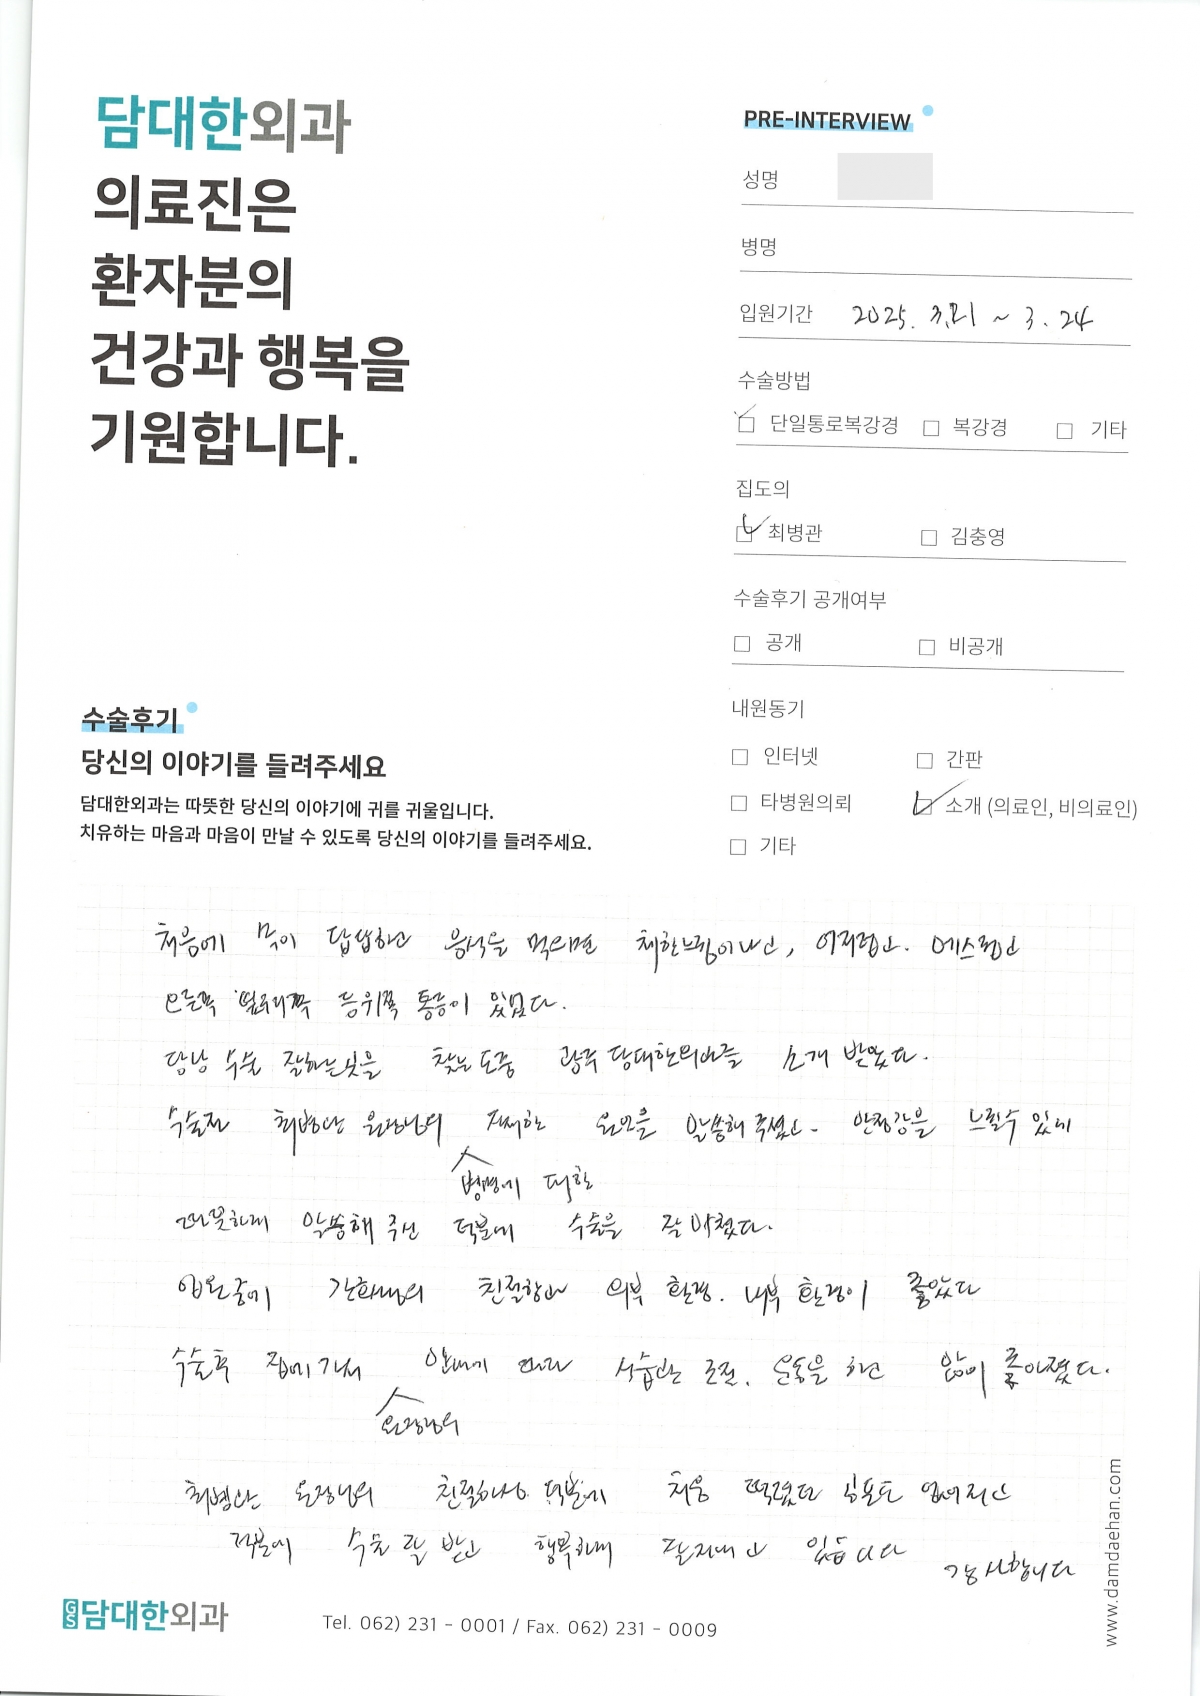 담대한외과
의료진은
환자분의
건강과 행복을
기원합니다.
PRE-INTERVIEW
성명
병명
입원기간 2025. 3.21 ~ 3.24
수술방법
단일통로복강경 복강경 기타
집도의
최병관 김충영
수술후기 공개여부
공개 비공개
내원동기
인터넷 간판
타병원의뢰 소개 (의료인, 비의료인)
기타
수술후기
당신의 이야기를 들려주세요
담대한외과는 따뜻한 당신의 이야기에 귀를 귀울입니다.
치유하는 마음과 마음이 만날 수 있도록 당신의 이야기를 들려주세요.
처음에 목이 답답하고 음식을 먹으면 체한느낌이나고, 어지럽고. 메스껍고
오른쪽 옆구리쪽 등위쪽 통증이 있었다.
담낭 수술 잘하는곳을 찾는 도중 광주 담대한외과를 소개 받았다.
수술전 최병관 원장님의 자세한 원인을 말씀해 주셨고. 안정감을 느낄수 있게
병명에 대한
따뜻하게 말씀해 주신 덕분에 수술을 잘 마쳤다.
입원중에 간호사님의 친절함과 외부 환경. 내부 환경이 좋았다
수술후 집에가서 안내에 따라 식습관 조절. 운동을 하고 많이 좋아졌다.
원장님의
최병관 원장님의 친절하신 덕분에 처음 떨렸던 공포도 없어지고
덕분에 수술 잘 받고 행복하게 잘 지내고 있습니다 감사합니다
GS담대한외과
Tel. 062) 231 - 0001 / Fax. 062) 231 - 0009
www.damdaehan.com